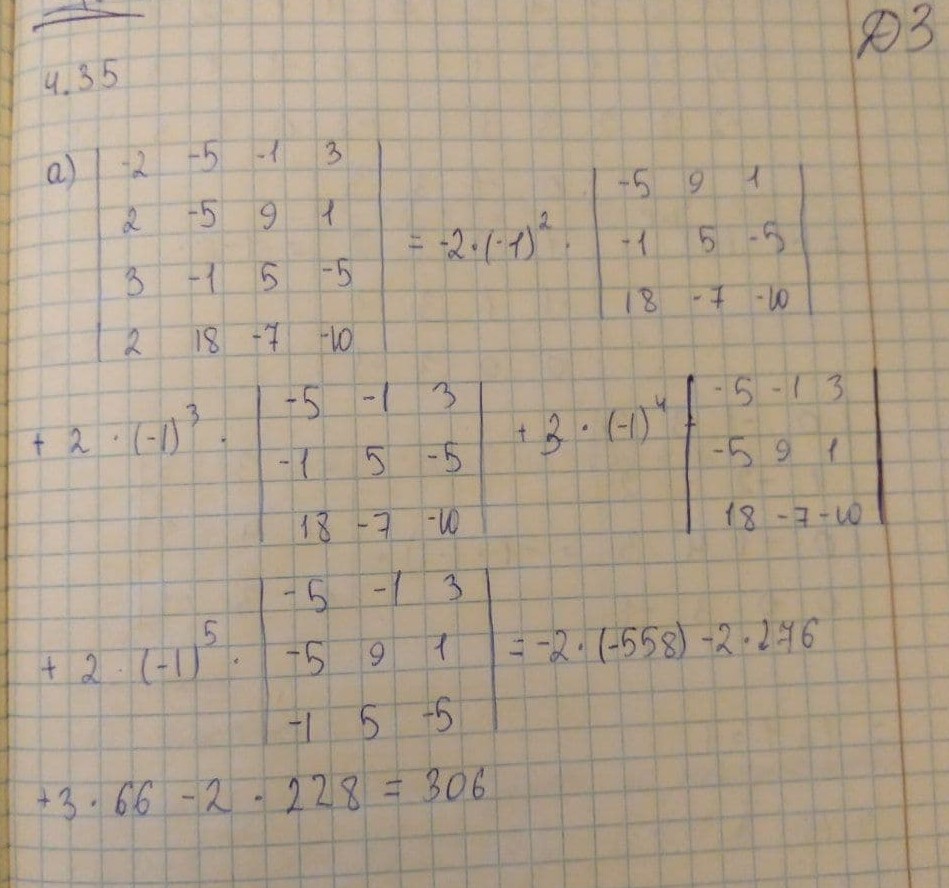 ДЗ
4.35
а) | -2 -5 -1 3 |
| 2 -5 9 1 |
| 3 -1 5 -5 |
| 2 18 -7 -10 |
= -2·(-1)² ·
| -5 9 1 |
| -1 5 -5 |
| 18 -7 -10 |
+ 2 · (-1)³ ·
| -5 -1 3 |
| -1 5 -5 |
| 18 -7 -10 |
+ 3 · (-1)⁴
| -5 -1 3 |
| -5 9 1 |
| 18 -7 -10 |
+ 2 · (-1)⁵ ·
| -5 -1 3 |
| -5 9 1 |
| -1 5 -5 |
= -2·(-558) -2·276
+3·66 -2·228 = 306